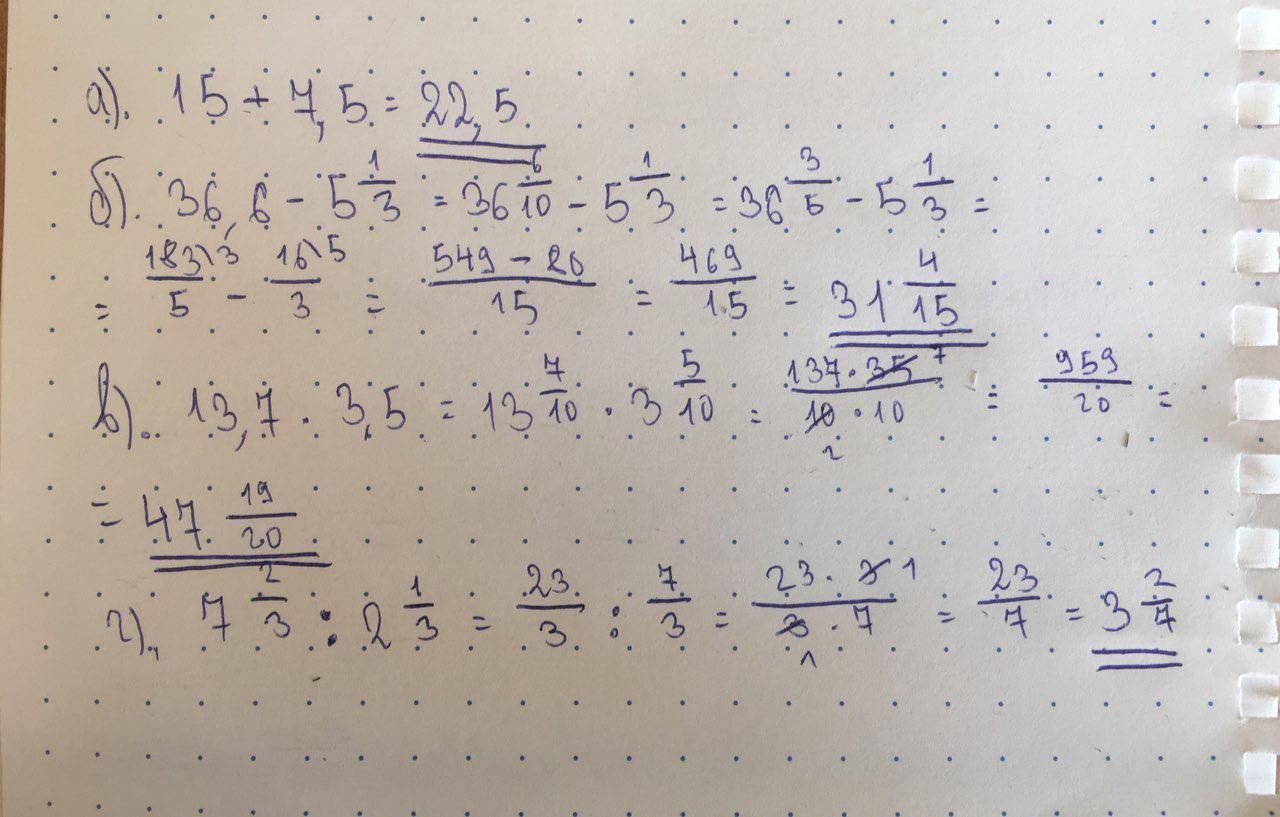 а). 15 + 7,5 = 22,5
б). 36,6 - 5 1/3 = 36 6/10 - 5 1/3 = 36 3/5 - 5 1/3 =
= 183\3/5 - 16\5/3 = 549 - 20/15 = 469/15 = 31 4/15
в). 13,7 · 3,5 = 13 7/10 · 3 5/10 = 137 · 35 7/10 2 · 10 = 959/20 =
= 47 19/20
г). 7 2/3 : 2 1/3 = 23/3 : 7/3 = 23 · 3 1/3 1 · 7 = 23/7 = 3 2/7